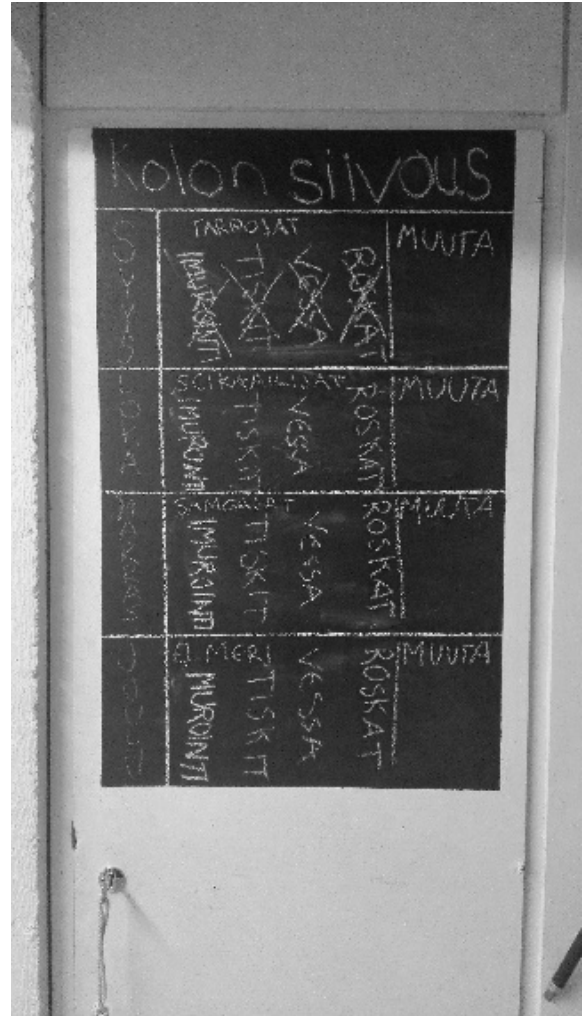 Kolon siivous
SYYSKUU
TARPOJAT
IMUROINTI
TISKIT
VESSA
ROSKAT
MUUTA
LOKA
IMUROINTI
TISKIT
VESSA
ROSKAT
MUUTA
SAMOAJAT
IMUROINTI
TISKIT
VESSA
ROSKAT
MUUTA
JOULU
IMUROINTI
TISKIT
VESSA
ROSKAT
MUUTA